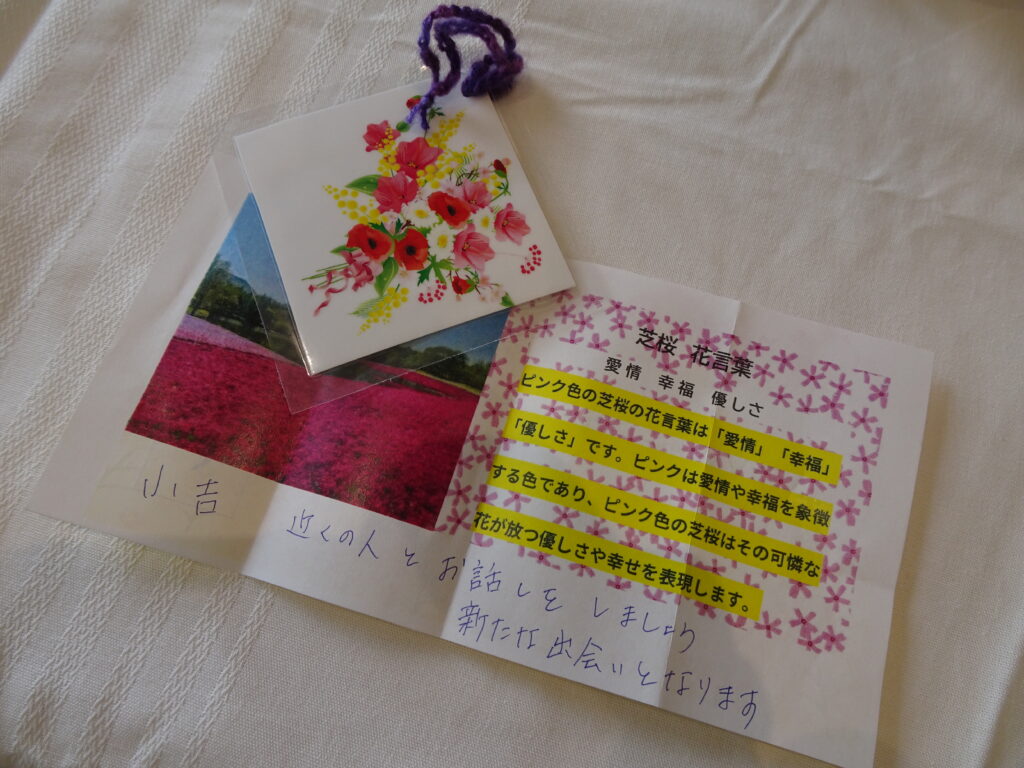 芝桜 花言葉
愛情 幸福 優しさ
ピンク色の芝桜の花言葉は「愛情」「幸福」
「優しさ」です。ピンクは愛情や幸福を象徴
する色であり、ピンク色の芝桜はその可憐な
花が放つ優しさや幸せを表現します。
小吉
近くの人とお話しをしましょう
新たな出会いとなります